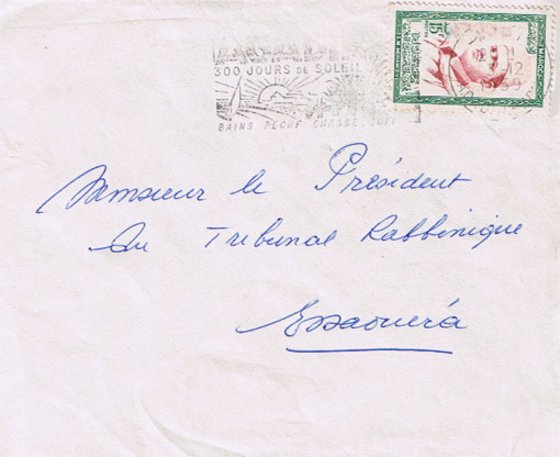 300 JOURS DE SOLEIL
BAINS PECHE CHASSE
15
MAROC
12
1959
Monsieur le Président
du Tribunal Rabbinique
Essaouéra